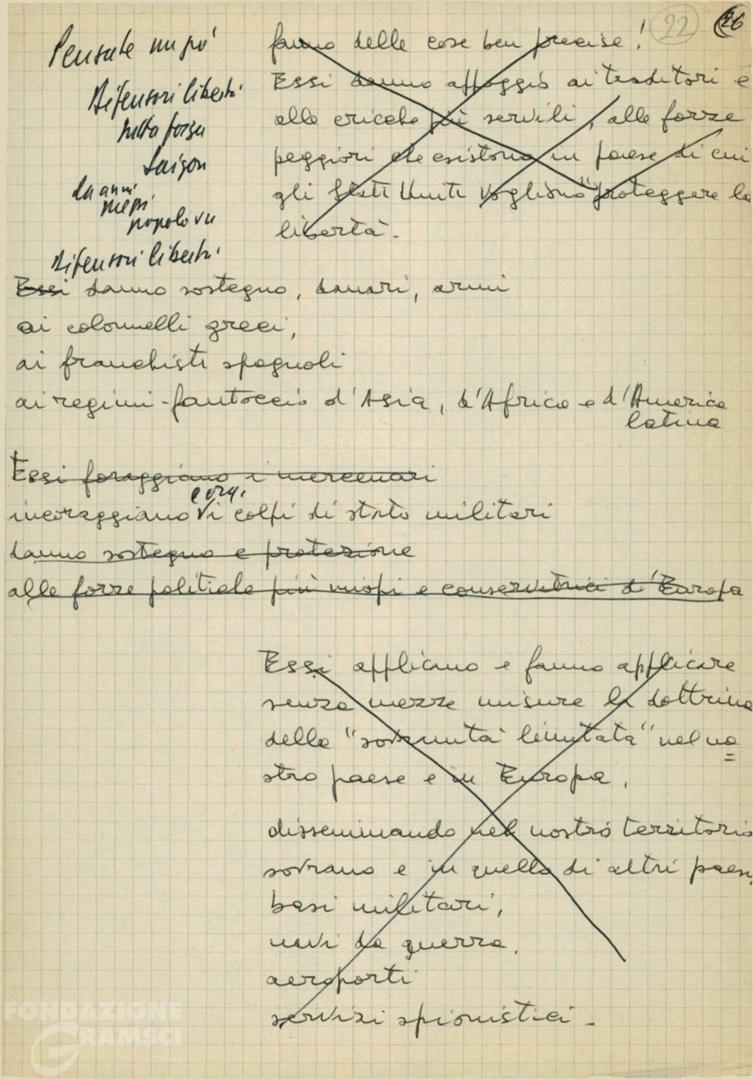 22
26
Pensate un po'
Difensori libertà
tutta forza
Saigon
da anni
popolo vn
Difensori libertà
fanno delle cose ben precise!
Essi danno appoggio ai traditori e
alle cricche più servili, alle forze
peggiori che esistono in paese di cui
gli Stati Uniti vogliono "proteggere la
libertà.
Essi danno sostegno, danari, armi
ai colonnelli greci,
ai franchisti spagnoli
ai regimi-fantoccio d'Asia, d'Africa e d'America
latina
Essi foraggiano i mercenari
incoraggiano i colpi di stato militari
danno sostegno e protezione
alle forze politiche più miopi e conservatrici d'Europa
Essi applicano e fanno applicare
senza mezze misure la dottrina
della "sovranità limitata" nel no=
stro paese e in Europa,
disseminando nel nostro territorio
sovrano e in quello di altri paesi
basi militari,
navi da guerra,
aeroporti
servizi spionistici.
FONDAZIONE
GRAMSCI